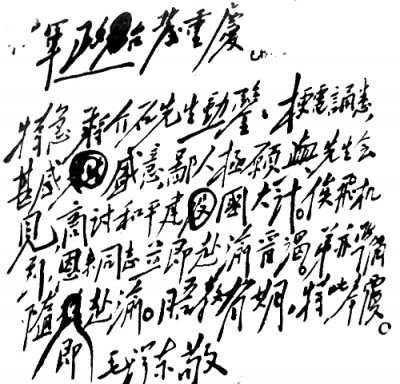 軍政台發重慶
特急 蔣介石先生勛鑒。梗電誦悉,
甚感盛意,鄙人極願與先生会
見,商討和平建國大計。俟飛机
到,恩来同志立即赴渝晋谒。弟亦準備
隨赴渝。晤教有期,特此奉復。
即 毛泽东敬